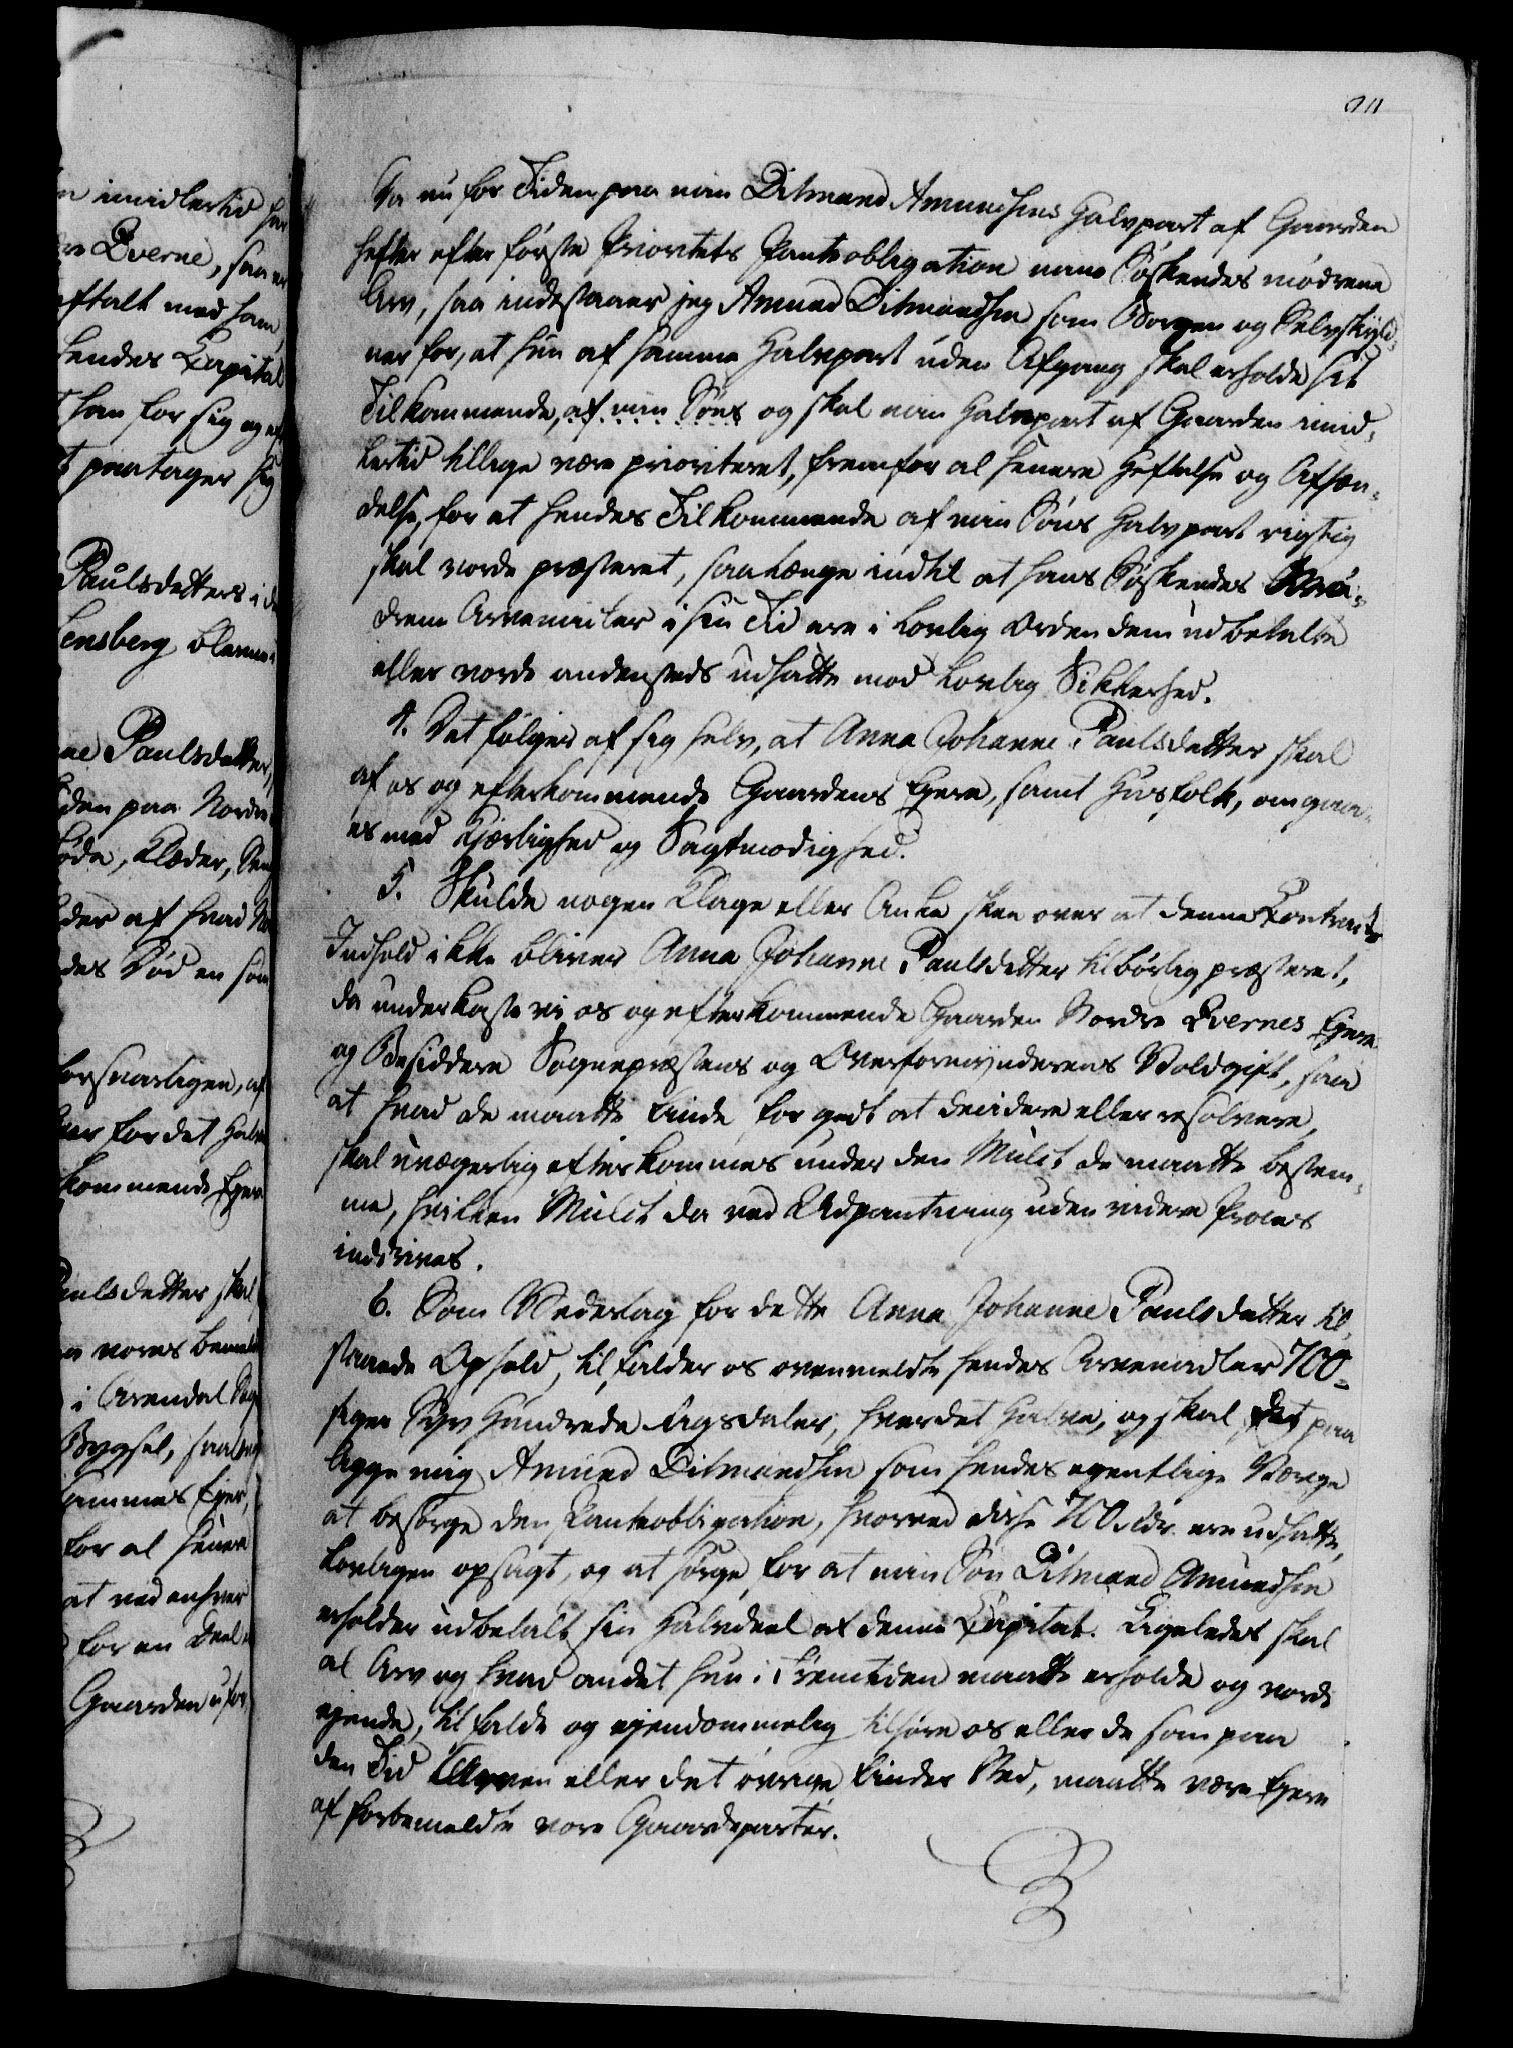 n imidlertid
re Qverne, saa
ftalt med ham,
hendes Capital
han for sig og
paatager sig
Paulsdatters i
ensberg
ne Paulsdatter,
den paa Nordre
øda, Klæder,
der af hvad
des Død en som
forsvarligen, af
er for det Halve
kommende Ejere
Paulsdatter skal
vores
i Arendal
Bygsel, saa
sammes Ejer,
for al senere
at ved enhver
for en Deel
Gaarden
Da nu for Tiden paa min Ditmand Amundsens Halvpart af Gaarden
hefter efter første Prioritets Panteobligation mine Søskendes mødrene
Arv, saa indestaaer jeg Amund Ditmandsen som Borgen og Selvskyld,
ner for, at hun af samme Halvpart uden Afgang skal erholde sit
Tilkommende, af min Søns og skal min Halvpart af Gaarden imid,
lertid tillige være prioriteret, fremfor al senere Heftelse og Afhæn,
delse, for at hendes Tilkommende af min Søns Halvpart rigtig
skal vorde præsteret, saalænge indtil at hans Søskendes Mø,
drene Arvemidler i sin Tid ere i lovlig Orden dem udbetalte
eller vorde andensteds udsatte mod lovlig Sikkerhed.
4. Det følger af sig selv, at Anna Johanne Paulsdatter skal
af os og efterkommende Gaardens Ejere, samt Huusfolk, omgaa,
es med Kjærlighed og Sagtmodighed.
5. Skulde nogen Klage eller Anke skee over at denne Contracts
Indhold ikke bliver Anna Johanne Paulsdatter tilbørlig præsteret,
da underkaste vi os og efterkommende Gaarden Nordre Qvernes Ejere
og Besiddere Sognepræstens og Overformynderens Voldgift, saa
at hvad de maatte finde for godt at decidere eller resolvere,
skal uvægerlig efterkommes under den Mulct de maatte bestem,
me, hvilken Mulct da ved Udpantning uden videre Proces
inddrives.
6. Som Vederlag for dette Anna Johanne Paulsdatter til,
staaede Ophold, tilfalder os ovenmeldte hendes Arvemidler 700
siger Syv Hundrede Rigsdaler, hver det Halve, og skal det paa
ligge mig Amund Ditmandsen som hendes egentlige Værge
at besørge den Panteobligation, hvorved disse 700 rdr. ere udsatte,
lovligen opsagt, og at sørge for at min Søn Ditmand Amundsen
erholder udbetalt sin Halvdeel af denne Capital. Ligeledes skal
al Arv og hvad andet hun i Fremtiden maatte erholde og vorde
ejende, tilfalde og ejendommelig tilhøre os eller de som paa
den Tid Arven eller det øvrige finder Sted, maatte være Ejere
af forbemeldte vore Gaardeparter.